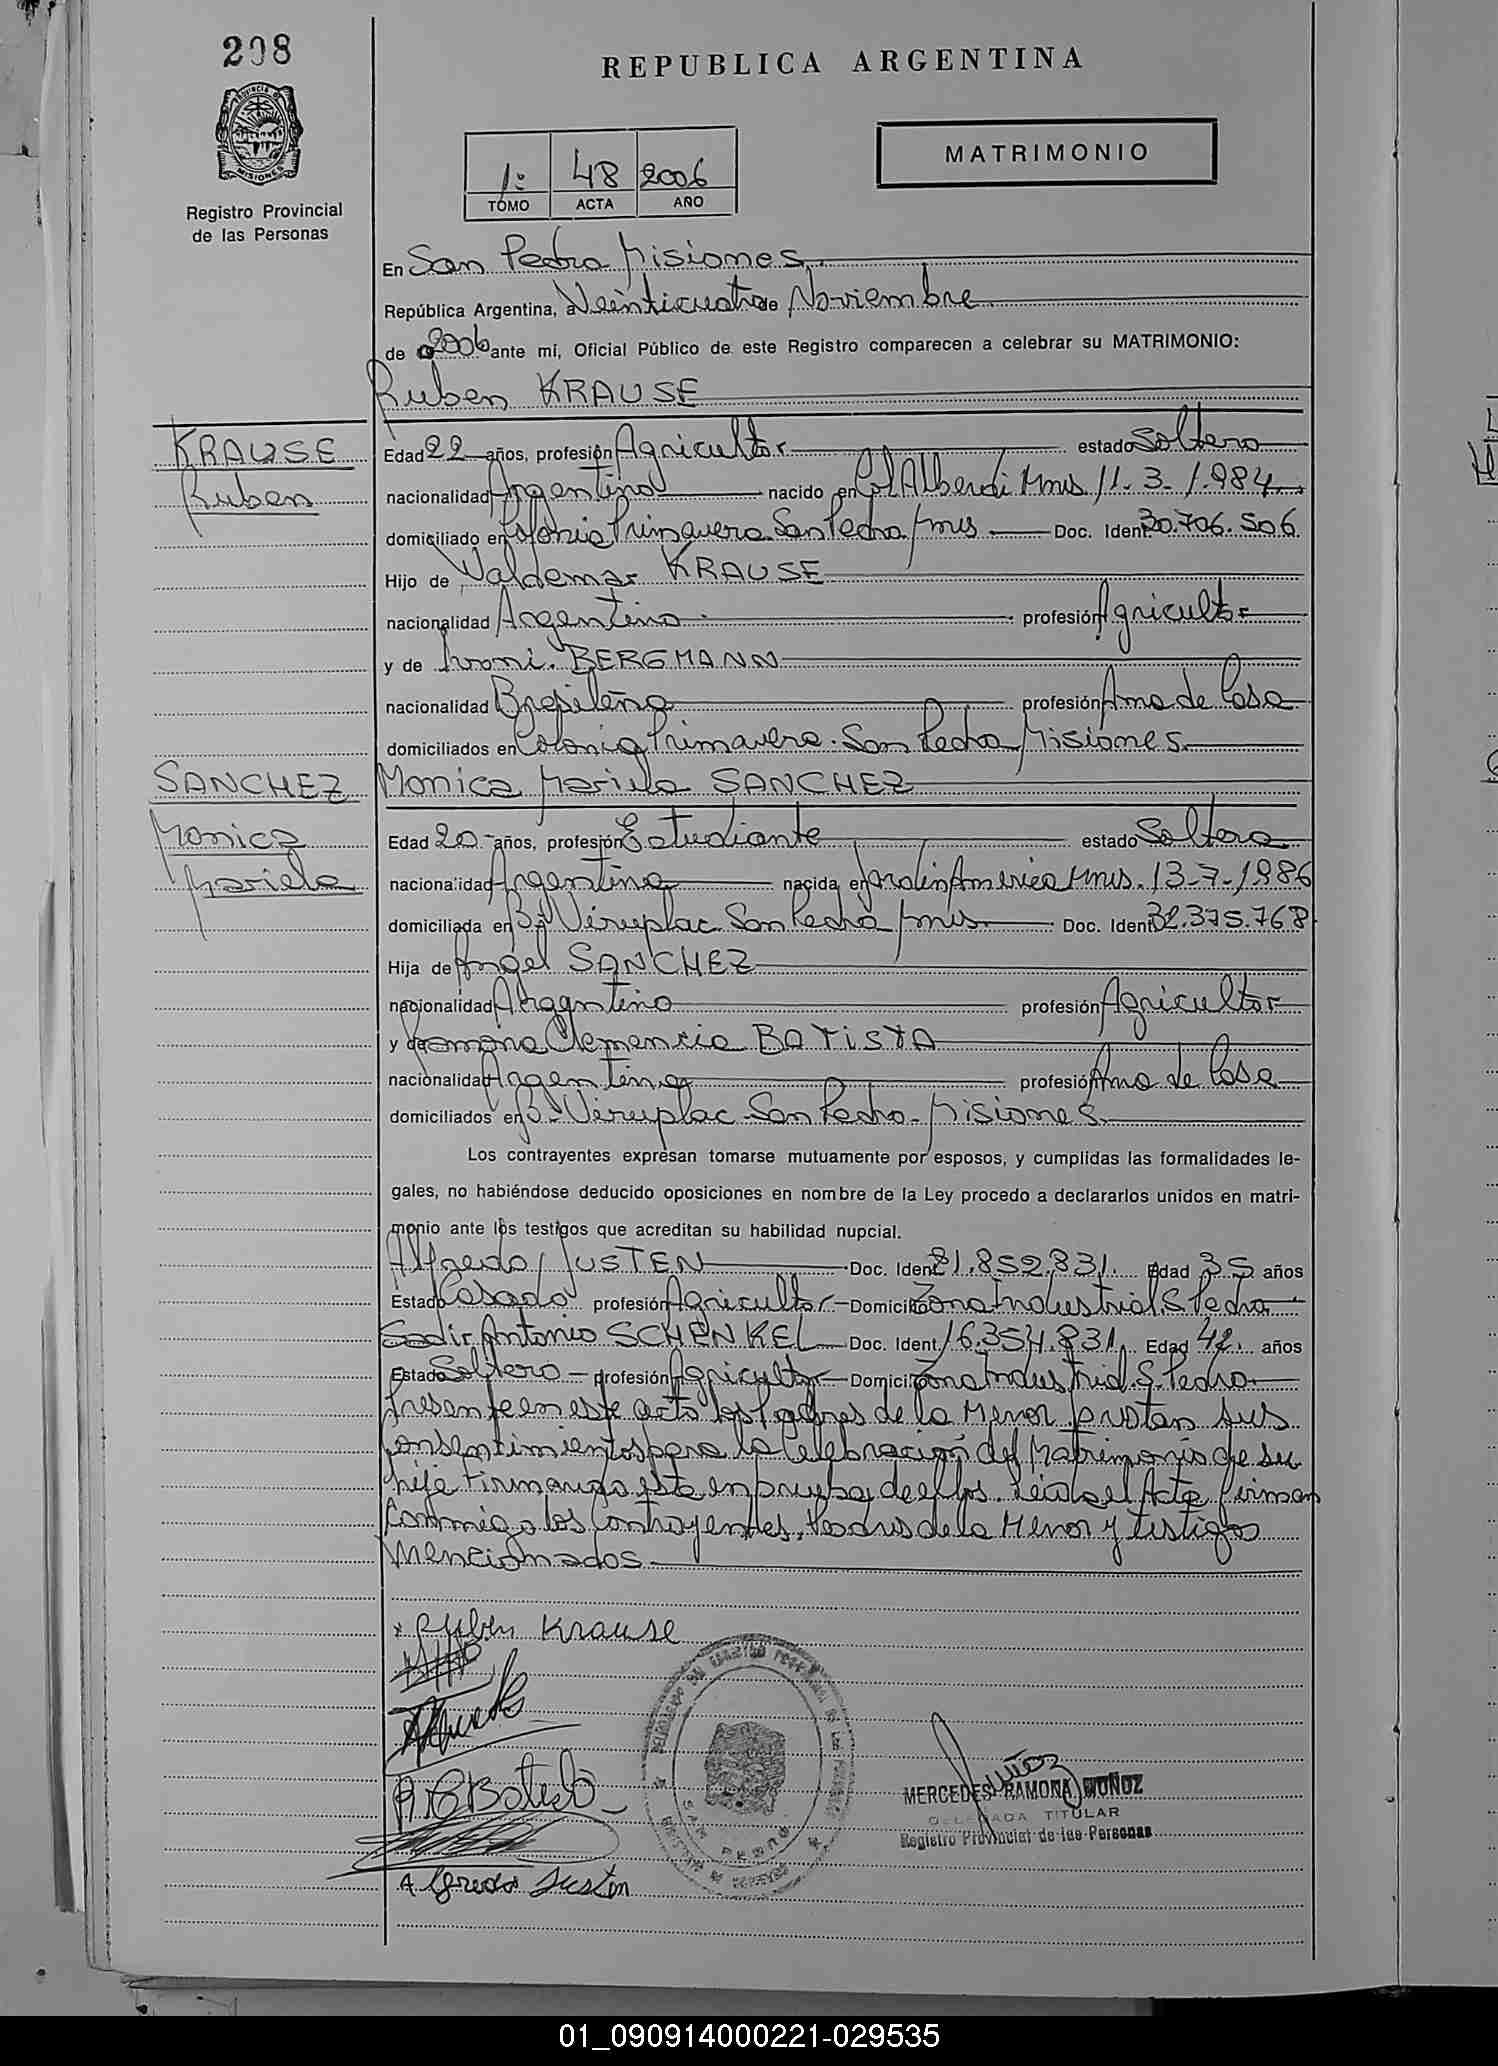 208
REPUBLICA ARGENTINA
Provincia de
MISIONES
Registro Provincial
de las Personas
1º 48 2006
TOMO ACTA AÑO
MATRIMONIO
En San Pedro Misiones
República Argentina, a Veinticuatro de Noviembre
de 2006 ante mi, Oficial Público de este Registro comparecen a celebrar su MATRIMONIO:
Ruben KRAUSE
KRAUSE
Ruben
Edad 22 años, profesión Agricultor estado Soltero
nacionalidad Argentino nacido en Col Alberdi Mnes 11-3-1984
domiciliado en Colonia Primavera San Pedro Mnes Doc. Ident. 30.706.506
Hijo de Valdemar KRAUSE
nacionalidad Argentino profesión Agricultor
y de Ivoni BERGMANN
nacionalidad Brasileña profesión Ama de Casa
domiciliados en Colonia Primavera San Pedro Misiones
SANCHEZ
Monica
Mariela
Monica Mariela SANCHEZ
Edad 20 años, profesión Estudiante estado Soltera
nacionalidad Argentina nacida en Jardin America Mnes. 13-7-1986
domiciliada en Bº Viruplac San Pedro Mnes Doc. Ident. 32.375.768
Hija de Angel SANCHEZ
nacionalidad Argentino profesión Agricultor
y de Ramona Clemencia BATISTA
nacionalidad Argentina profesión Ama de Casa
domiciliados en Bº Viruplac San Pedro-Misiones
Los contrayentes expresan tomarse mutuamente por esposos, y cumplidas las formalidades le-
gales, no habiéndose deducido oposiciones en nombre de la Ley procedo a declararlos unidos en matri-
monio ante los testigos que acreditan su habilidad nupcial.
Alfredo JUSTEN Doc. Ident. 21.852.831. Edad 35 años
Estado Casado profesión Agricultor Domicilio Zona Industrial S. Pedro
Antonio SCHENKEL Doc. Ident. 16.354.831. Edad 42 años
Estado Soltero profesión Agricultor Domicilio Zona Industrial S. Pedro
Presente en este acto los Padres de la Menor prestan sus
consentimientos para la celebración del Matrimonio de su
hija firmando esta en prueba de ellos. Leida el Acta firman
Conmigo los Contrayentes, Padres de la Menor y testigos
mencionados
Ruben Krause
R. C Batista
Alfredo Justen
SAN PEDRO
Muñoz
MERCEDES RAMONA MUÑOZ
DELEGADA TITULAR
Registro Provincial de las Personas
01_090914000221-029535